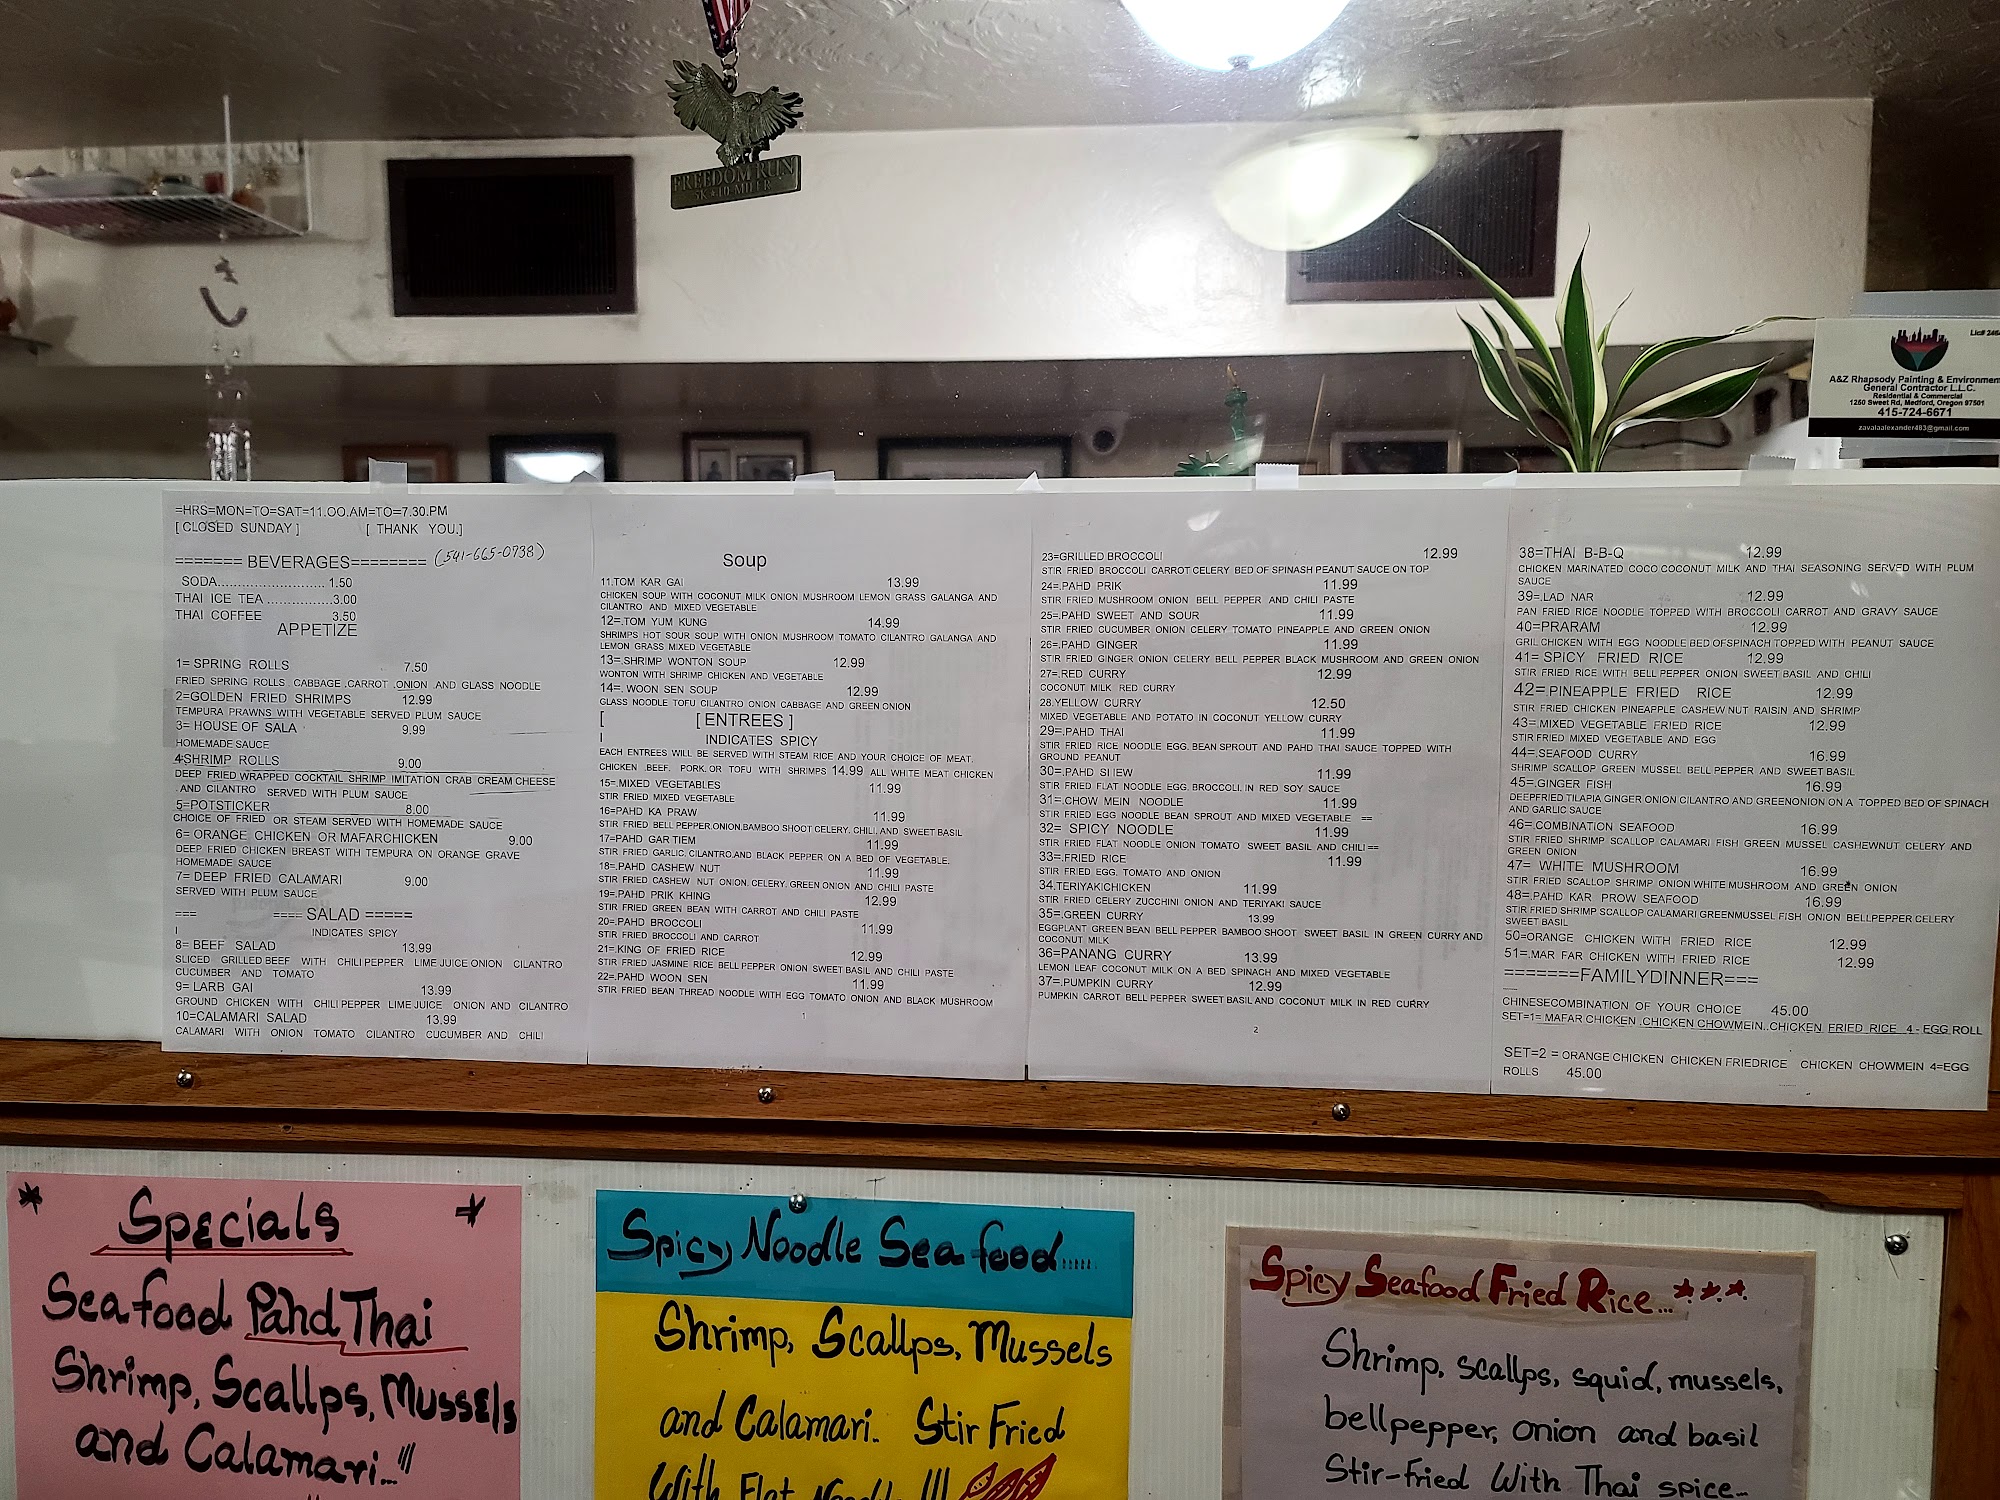 FREEDOM RUN
5K & 10-MILER
Lic# 246
A&Z Rhapsody Painting & Environmen
General Contractor L.L.C.
Residential & Commercial
1260 Sweet Rd, Medford, Oregon 97501
415-724-6671
zavalaalexander483@gmail.com
=HRS=MON=TO=SAT=11.OO.AM=TO=7.30.PM
[ CLOSED SUNDAY ] [ THANK YOU.]
======= BEVERAGES======== (541-665-0738)
SODA.......................... 1.50
THAI ICE TEA ................3.00
THAI COFFEE 3.50
APPETIZE
1= SPRING ROLLS 7.50
FRIED SPRING ROLLS. CABBAGE .CARROT .ONION AND GLASS NOODLE
2=GOLDEN FRIED SHRIMPS 12.99
TEMPURA PRAWNS WITH VEGETABLE SERVED PLUM SAUCE
3= HOUSE OF SALA 9.99
HOMEMADE SAUCE
4=SHRIMP ROLLS 9.00
DEEP FRIED WRAPPED COCKTAIL SHRIMP IMITATION CRAB CREAM CHEESE
. AND CILANTRO SERVED WITH PLUM SAUCE
5=POTSTICKER 8.00
CHOICE OF FRIED OR STEAM SERVED WITH HOMEMADE SAUCE
6= ORANGE CHICKEN OR MAFARCHICKEN 9.00
DEEP FRIED CHICKEN BREAST WITH TEMPURA ON ORANGE GRAVE
HOMEMADE SAUCE
7= DEEP FRIED CALAMARI 9.00
SERVED WITH PLUM SAUCE
=== ==== SALAD =====
I INDICATES SPICY
8= BEEF SALAD 13.99
SLICED GRILLED BEEF WITH CHILI PEPPER LIME JUICE ONION CILANTRO
CUCUMBER AND TOMATO
9= LARB GAI 13.99
GROUND CHICKEN WITH CHILI PEPPER LIME JUICE ONION AND CILANTRO
10=CALAMARI SALAD 13,99
CALAMARI WITH ONION TOMATO CILANTRO CUCUMBER AND CHILI
Soup
11.TOM KAR GAI 13.99
CHICKEN SOUP WITH COCONUT MILK ONION MUSHROOM LEMON GRASS GALANGA AND
CILANTRO AND MIXED VEGETABLE
12=.TOM YUM KUNG 14.99
SHRIMPS HOT SOUR SOUP WITH ONION MUSHROOM TOMATO CILANTRO GALANGA AND
LEMON GRASS MIXED VEGETABLE
13=.SHRIMP WONTON SOUP 12.99
WONTON WITH SHRIMP CHICKEN AND VEGETABLE
14=. WOON SEN SOUP 12.99
GLASS NOODLE TOFU CILANTRO ONION CABBAGE AND GREEN ONION
[ [ ENTREES ]
I INDICATES SPICY
EACH ENTREES WILL BE SERVED WITH STEAM RICE AND YOUR CHOICE OF MEAT.
CHICKEN .BEEF. PORK. OR TOFU WITH SHRIMPS 14.99 ALL WHITE MEAT CHICKEN
15=.MIXED VEGETABLES 11.99
STIR FRIED MIXED VEGETABLE
16=PAHD KA PRAW 11.99
STIR FRIED BELL PEPPER.ONION.BAMBOO SHOOT CELERY. CHILI. AND SWEET BASIL
17=PAHD GAR TIEM 11.99
STIR FRIED GARLIC. CILANTRO.AND BLACK PEPPER ON A BED OF VEGETABLE.
18=.PAHD CASHEW NUT 11.99
STIR FRIED CASHEW NUT ONION. CELERY. GREEN ONION AND CHILI PASTE
19=.PAHD PRIK KHING 12.99
STIR FRIED GREEN BEAN WITH CARROT AND CHILI PASTE
20=.PAHD BROCCOLI 11.99
STIR FRIED BROCCOLI AND CARROT
21=.KING OF FRIED RICE 12.99
STIR FRIED JASMINE RICE BELL PEPPER ONION SWEET BASIL AND CHILI PASTE
22=.PAHD WOON SEN 11.99
STIR FRIED BEAN THREAD NOODLE WITH EGG TOMATO ONION AND BLACK MUSHROOM
1
23=GRILLED BROCCOLI 12.99
STIR FRIED BROCCOLI CARROT CELERY BED OF SPINASH PEANUT SAUCE ON TOP
24=.PAHD PRIK 11.99
STIR FRIED MUSHROOM ONION BELL PEPPER AND CHILI PASTE
25=.PAHD SWEET AND SOUR 11.99
STIR FRIED CUCUMBER ONION CELERY TOMATO PINEAPPLE AND GREEN ONION
26=.PAHD GINGER 11.99
STIR FRIED GINGER ONION CELERY BELL PEPPER BLACK MUSHROOM AND GREEN ONION
27=.RED CURRY 12.99
COCONUT MILK RED CURRY
28.YELLOW CURRY 12.50
MIXED VEGETABLE AND POTATO IN COCONUT YELLOW CURRY
29=.PAHD THAI 11.99
STIR FRIED RICE NOODLE EGG. BEAN SPROUT AND PAHD THAI SAUCE TOPPED WITH
GROUND PEANUT
30=.PAHD SI IEW 11.99
STIR FRIED FLAT NOODLE EGG. BROCCOLI. IN RED SOY SAUCE
31=.CHOW MEIN NOODLE 11.99
STIR FRIED EGG NOODLE BEAN SPROUT AND MIXED VEGETABLE ==
32= SPICY NOODLE 11.99
STIR FRIED FLAT NOODLE ONION TOMATO SWEET BASIL AND CHILI ==
33=.FRIED RICE 11.99
STIR FRIED EGG. TOMATO AND ONION
34.TERIYAKI CHICKEN 11.99
STIR FRIED CELERY ZUCCHINI ONION AND TERIYAKI SAUCE
35=.GREEN CURRY 13.99
EGGPLANT GREEN BEAN BELL PEPPER BAMBOO SHOOT SWEET BASIL IN GREEN CURRY AND
COCONUT MILK
36=PANANG CURRY 13.99
LEMON LEAF COCONUT MILK ON A BED SPINACH AND MIXED VEGETABLE
37=.PUMPKIN CURRY 12.99
PUMPKIN CARROT BELL PEPPER SWEET BASIL AND COCONUT MILK IN RED CURRY
2
38=THAI B-B-Q 12.99
CHICKEN MARINATED COCO.COCONUT MILK AND THAI SEASONING SERVED WITH PLUM
SAUCE
39=.LAD NAR 12.99
PAN FRIED RICE NOODLE TOPPED WITH BROCCOLI CARROT AND GRAVY SAUCE
40=PRARAM 12.99
GRIL CHICKEN WITH EGG NOODLE BED OFSPINACH TOPPED WITH PEANUT SAUCE
41= SPICY FRIED RICE 12.99
STIR FRIED RICE WITH BELL PEPPER ONION SWEET BASIL AND CHILI
42=.PINEAPPLE FRIED RICE 12.99
STIR FRIED CHICKEN PINEAPPLE CASHEW NUT RAISIN AND SHRIMP
43=.MIXED VEGETABLE FRIED RICE 12.99
STIR FRIED MIXED VEGETABLE AND EGG
44=.SEAFOOD CURRY 16.99
SHRIMP SCALLOP GREEN MUSSEL BELL PEPPER AND SWEET BASIL
45=.GINGER FISH 16.99
DEEPFRIED TILAPIA GINGER ONION CILANTRO AND GREENONION ON A TOPPED BED OF SPINACH
AND GARLIC SAUCE
46=.COMBINATION SEAFOOD 16.99
STIR FRIED SHRIMP SCALLOP CALAMARI FISH GREEN MUSSEL CASHEWNUT CELERY AND
GREEN ONION
47= WHITE MUSHROOM 16.99
STIR FRIED SCALLOP SHRIMP ONION WHITE MUSHROOM AND GREEN ONION
48=.PAHD KAR PROW SEAFOOD 16.99
STIR FRIED SHRIMP SCALLOP CALAMARI GREENMUSSEL FISH ONION BELLPEPPER CELERY
SWEET BASIL
50=ORANGE CHICKEN WITH FRIED RICE 12.99
51=.MAR FAR CHICKEN WITH FRIED RICE 12.99
=======FAMILYDINNER===
CHINESECOMBINATION OF YOUR CHOICE 45.00
SET=1= MAFAR CHICKEN .CHICKEN CHOWMEIN..CHICKEN FRIED RICE 4 - EGG ROLL
SET=2 = ORANGE CHICKEN CHICKEN FRIEDRICE CHICKEN CHOWMEIN 4=EGG
ROLLS 45.00
Specials
Seafood Pahd Thai
Shrimp, Scallps, Mussels
and Calamari...!!!
Spicy Noodle Sea food.....
Shrimp, Scallps, Mussels
and Calamari.. Stir Fried
With Flat Noodle !!!
Spicy Seafood Fried Rice...
Shrimp, scallps, squid, mussels,
bellpepper, onion and basil
Stir-fried With Thai spice...